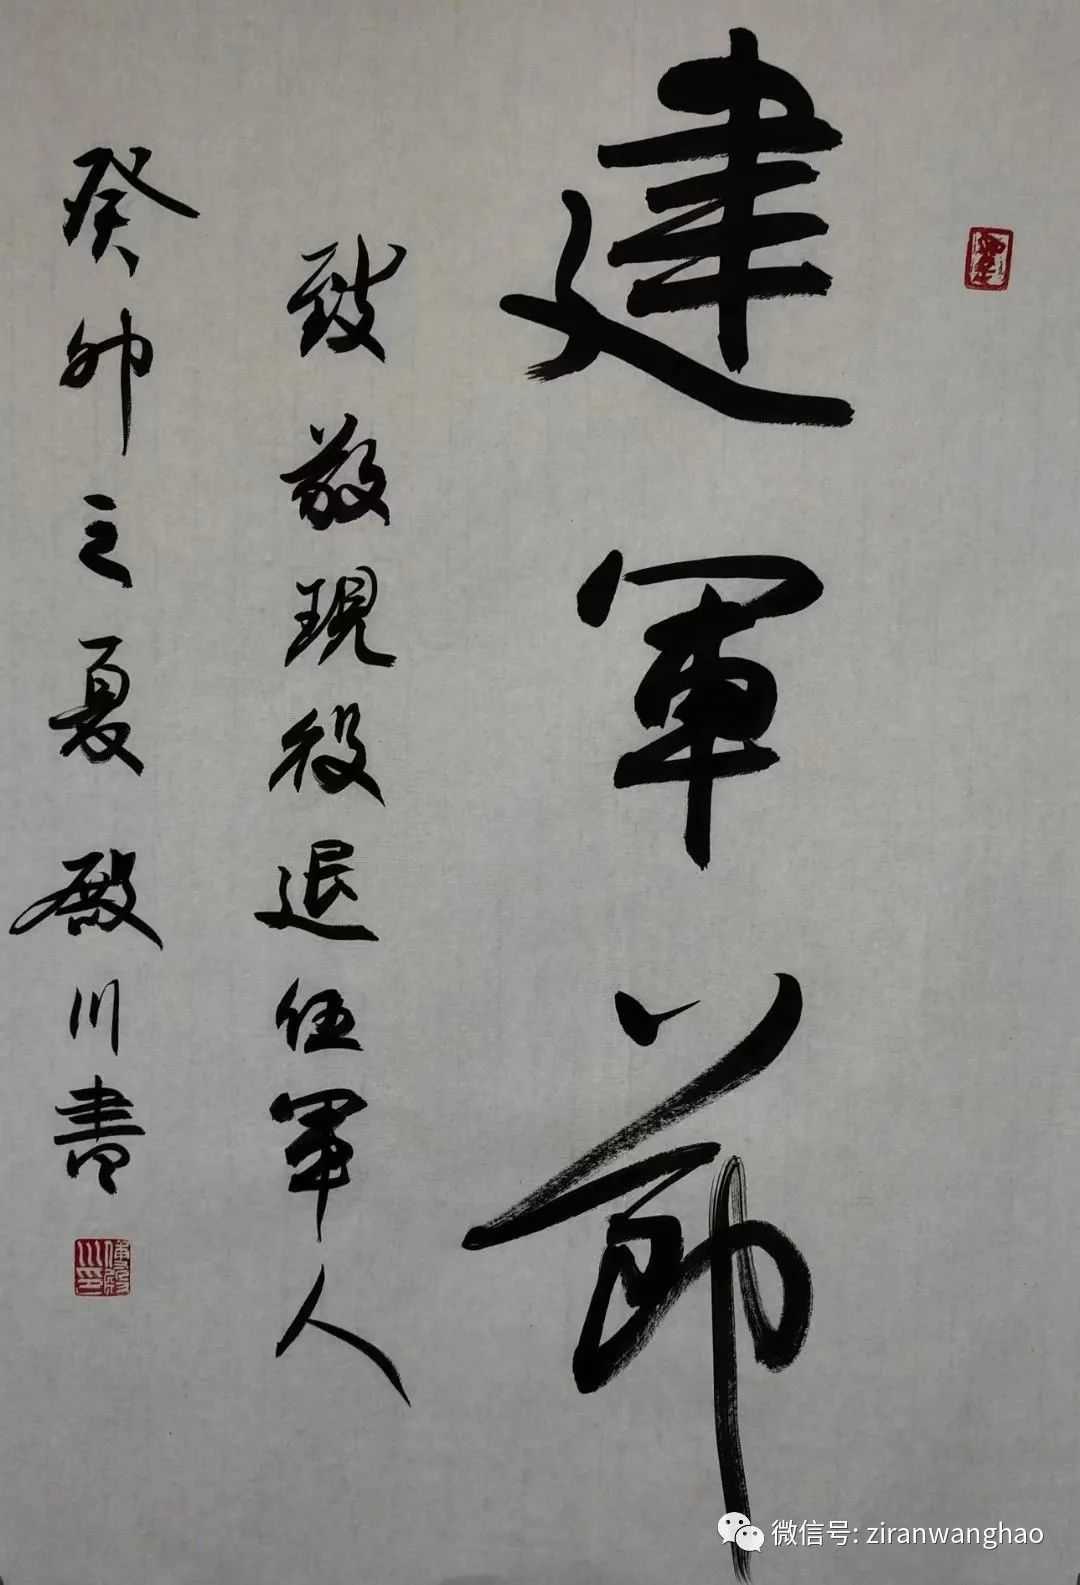 建軍節
致敬現役退伍軍人
癸卯之夏 殿川書
微信号: ziranwanghao